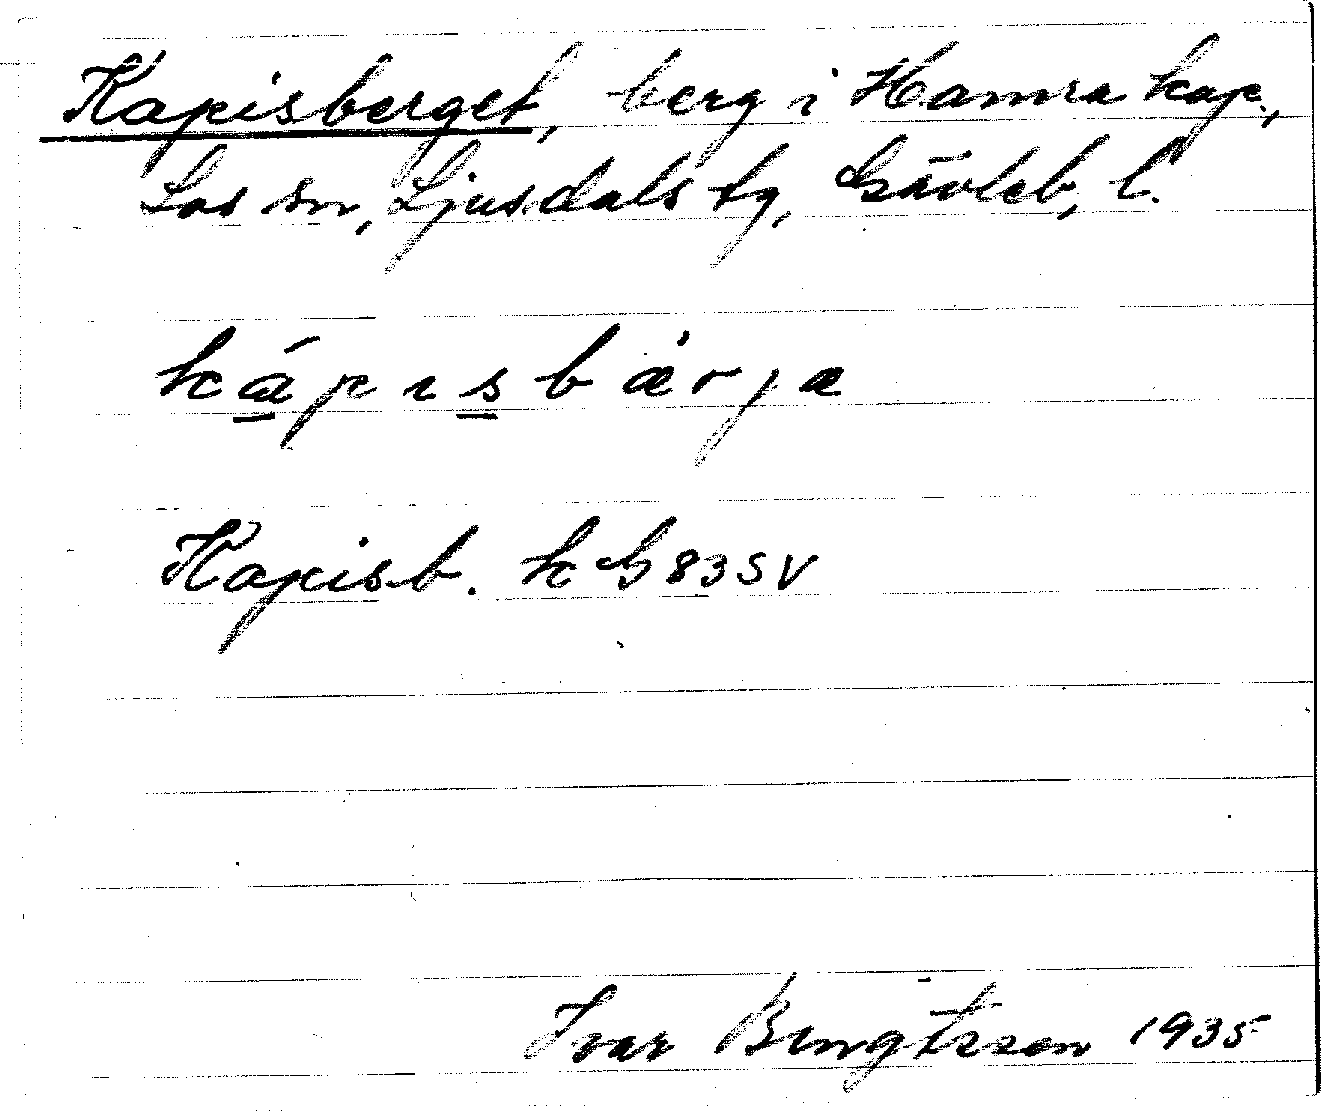 Kapisberget, berg i Hamra kap.,
Los sn, Ljusdals tg, Gävleb. l.
kápɩsbærjæ
Kapisb. k G 83 SV
Ivar Bengtsson 1935